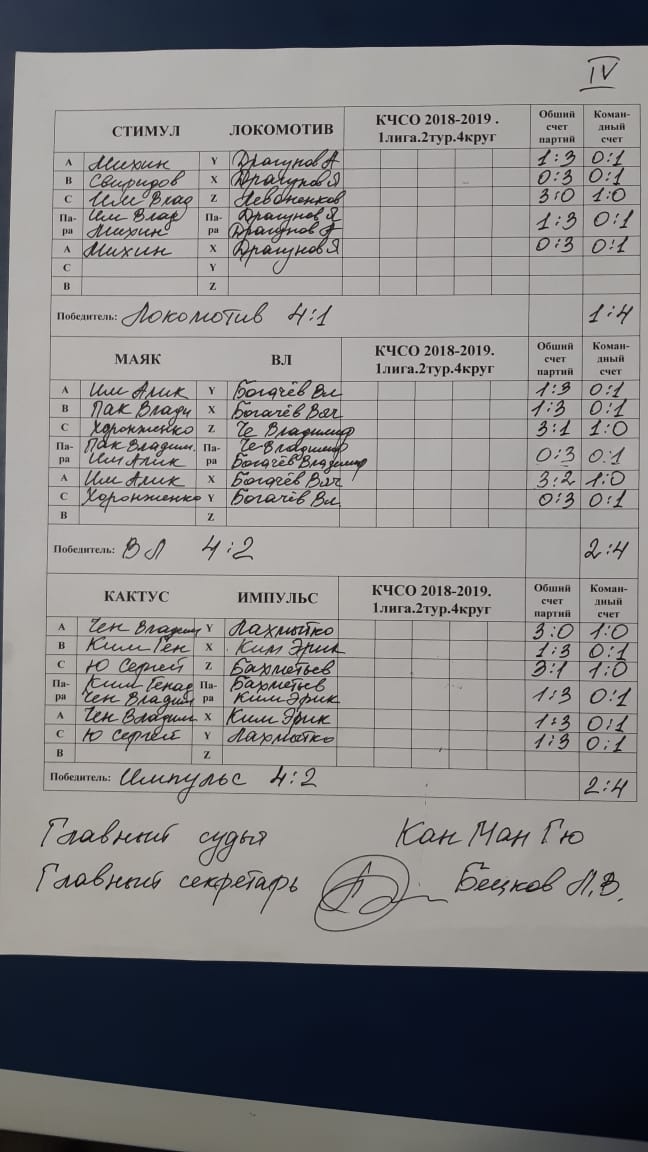 IV
СТИМУЛ ЛОКОМОТИВ КЧСО 2018-2019 . 1лига.2тур.4круг Общий счет партий Коман- дный счет
A Михин Y Драгунов А 1:3 0:1
B Свиридов X Драгунов Я 0:3 0:1
C Им Влад Z Леваненков 3:0 1:0
Па- Им Влад Па- Драгунов Я
ра Михин ра Драгунов А 1:3 0:1
A Михин X Драгунов Я 0:3 0:1
C Y
B Z
Победитель: Локомотив 4:1 1:4
МАЯК ВЛ КЧСО 2018-2019. 1лига.2тур.4круг Общий счет партий Коман- дный счет
A Им Алик Y Богачёв Вл 1:3 0:1
B Пак Влади X Богачёв Вяч 1:3 0:1
C Хоронженко Z Че Владимир 3:1 1:0
Па- Пак Владим. Па- Че Владимир
ра Им Алик ра Богачёв Владимир 0:3 0:1
A Им Алик X Богачёв Вяч 3:2 1:0
C Хоронженко Y Богачёв Вл 0:3 0:1
B Z
Победитель: ВЛ 4:2 2:4
КАКТУС ИМПУЛЬС КЧСО 2018-2019. 1лига.2тур.4круг Общий счет партий Коман- дный счет
A Чен Владим Y Лахмытко 3:0 1:0
B Ким Ген X Ким Эрик 1:3 0:1
C Ю Сергей Z Бахметьев 3:1 1:0
Па- Ким Генад Па- Бахметьев
ра Чен Владим ра Ким Эрик 1:3 0:1
A Чен Владим X Ким Эрик 1:3 0:1
C Ю Сергей Y Лахмытко 1:3 0:1
B Z
Победитель: Импульс 4:2 2:4
Главный судья Кан Ман Гю
Главный секретарь Бецков Л.В.